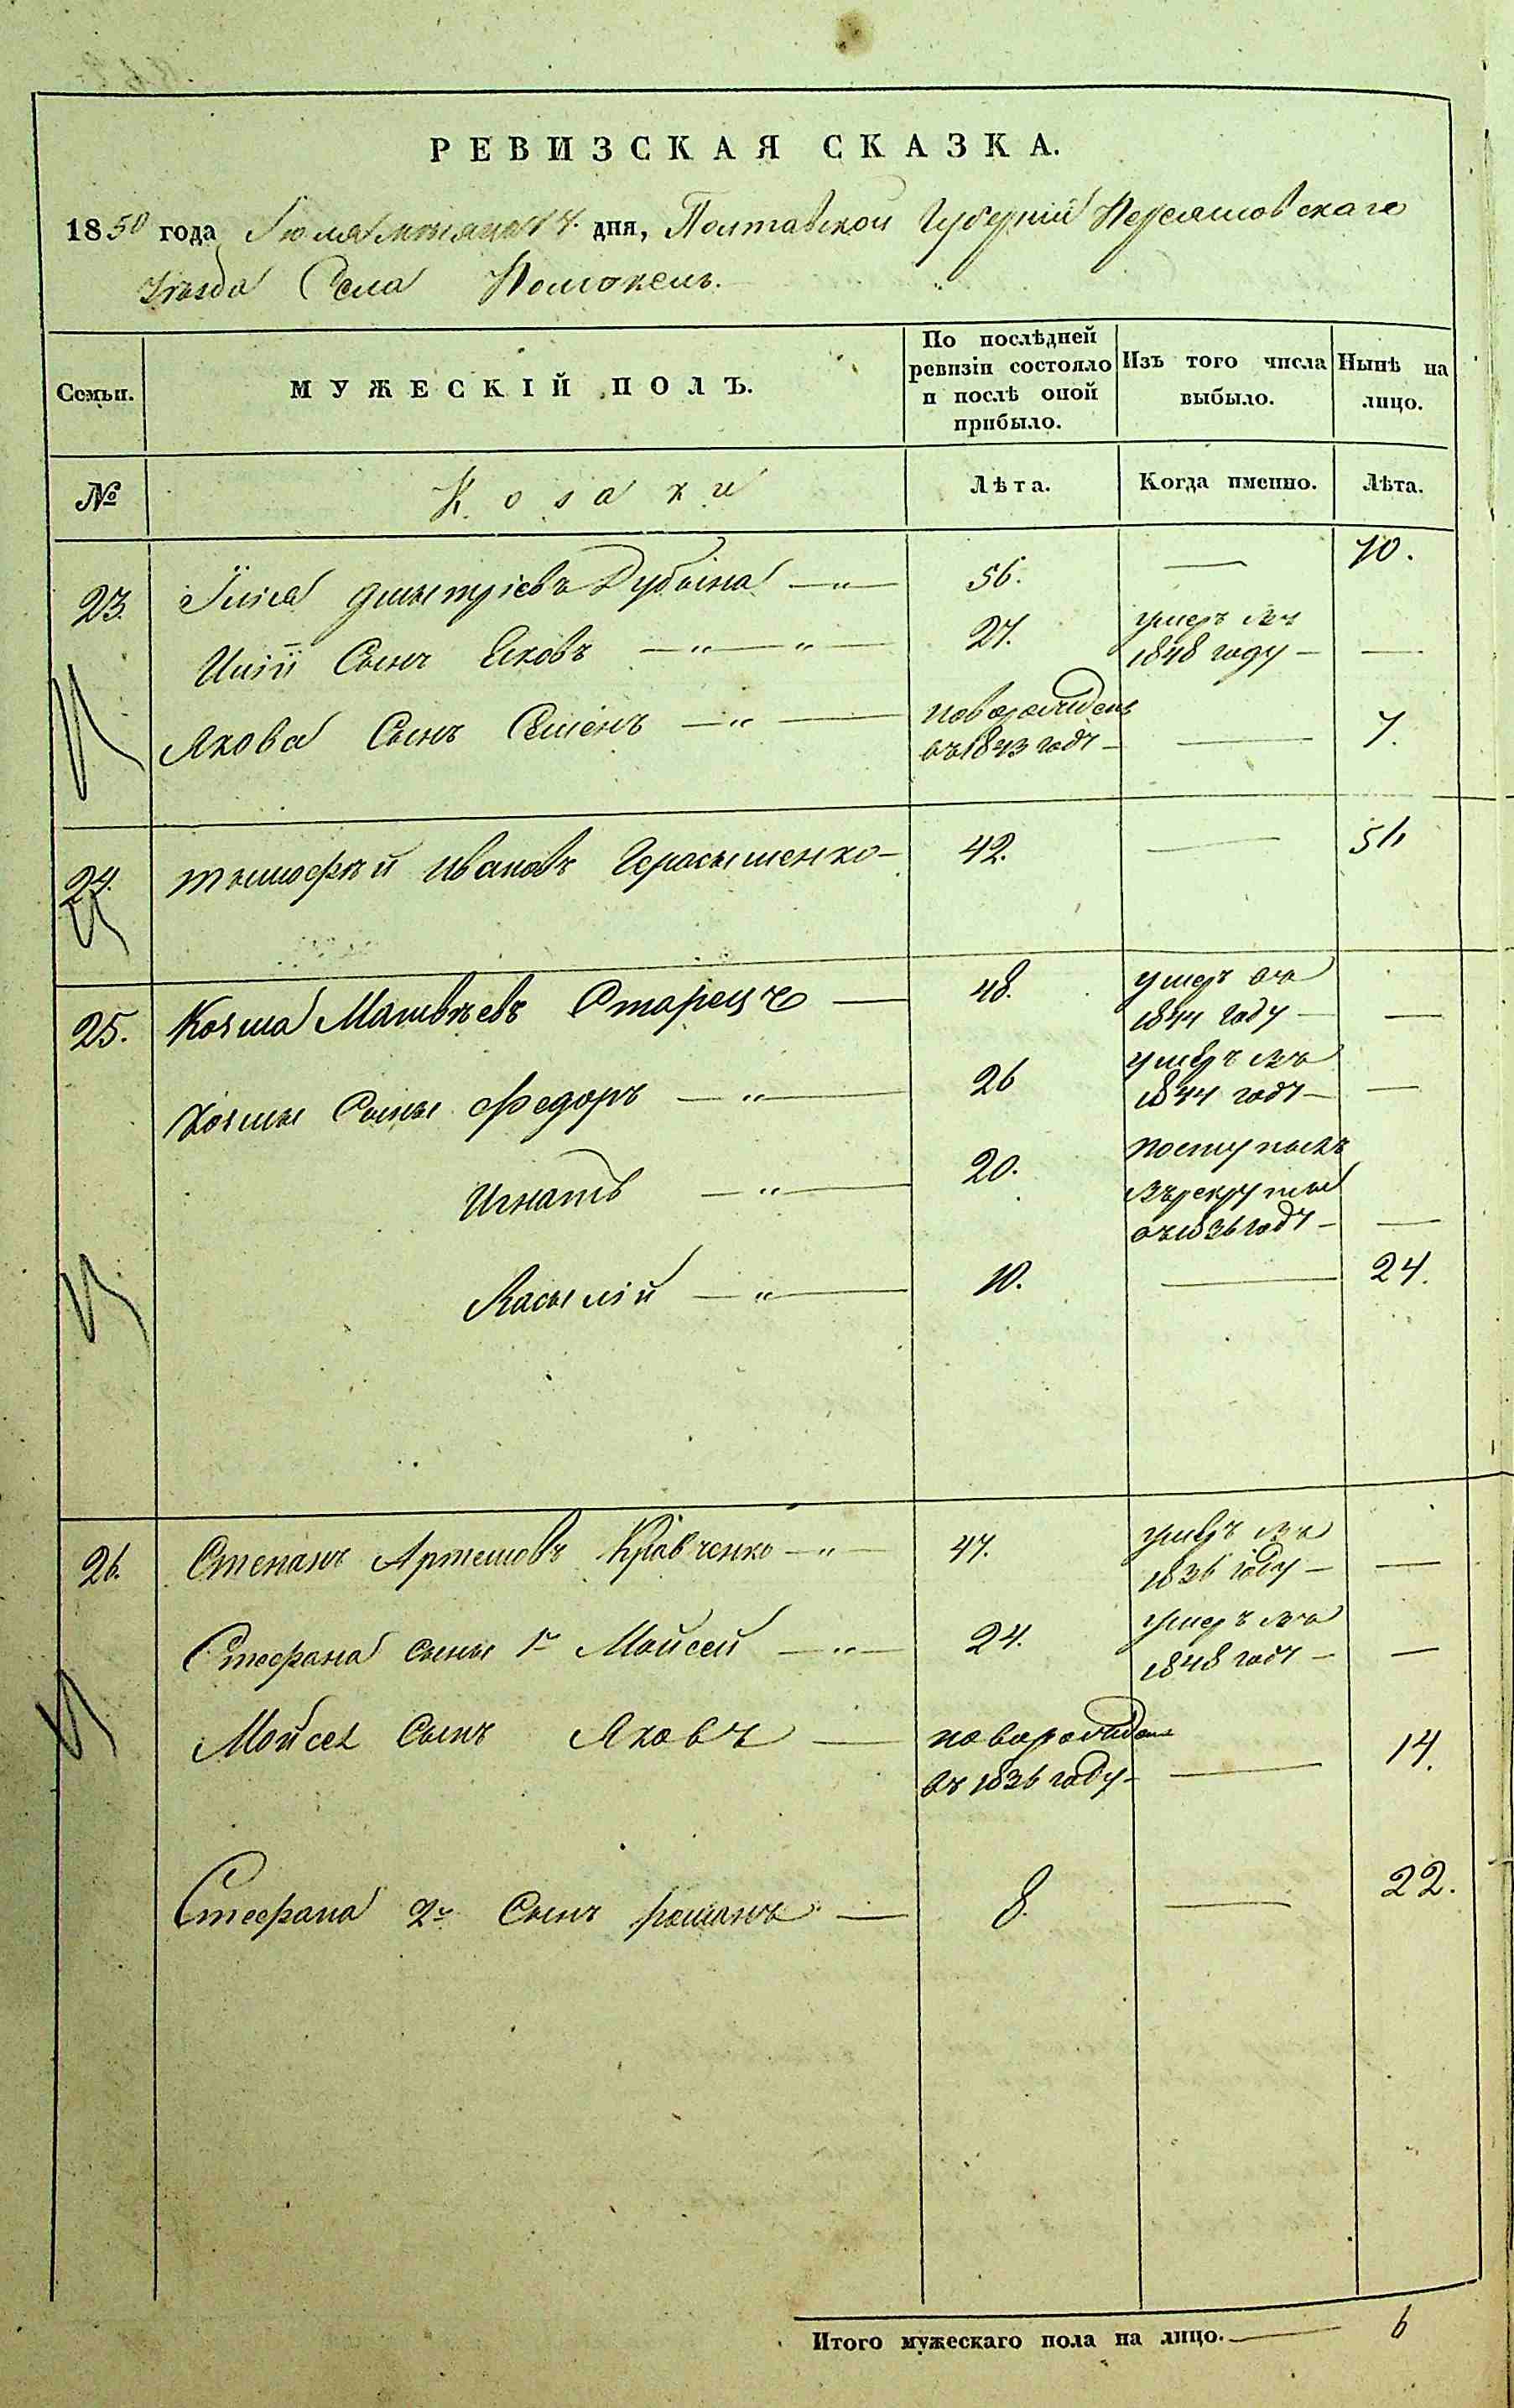 РЕВИЗСКАЯ СКАЗКА.
1850 года Іюля месяца 17. дня, Полтавской Губерніи Переяславскаго
Уѣзда Села Помокель.
Семьи. МУЖЕСКІЙ ПОЛЪ. По послѣдней ревизіи состояло и послѣ оной прибыло. Изъ того числа выбыло. Нынѣ на лицо.
№ Козаки Лѣта. Когда именно. Лѣта.
23. Илія Дмытріевъ Дубына — 56. — 70.
Иліи Сынъ Яковъ — 27. умеръ въ 1848 году — —
Якова Сынъ Семенъ — новорожденъ въ 1843 году — — 7.
24. Тымофѣй Ивановъ Герасыменко — 42. — 56
25. Козма Матвѣевъ Старецъ — 48. умеръ въ 1844 году — —
Козмы Сыны Федоръ — 26 умеръ въ 1844 году — —
Игнатъ — 20. поступылъ въ рекруты въ 1836 году — —
Васылій — 10. — 24.
26. Степанъ Артемовъ Кравченко — 47. умеръ въ 1836 году — —
Стефана сыны 1й Мойсей — 24. умеръ въ 1848 году — —
Мойсея Сынъ Яковъ — новорожденъ въ 1836 году — — 14.
Стефана 2й Сынъ романъ — 8. — 22.
Итого мужескаго пола на лицо. — 6